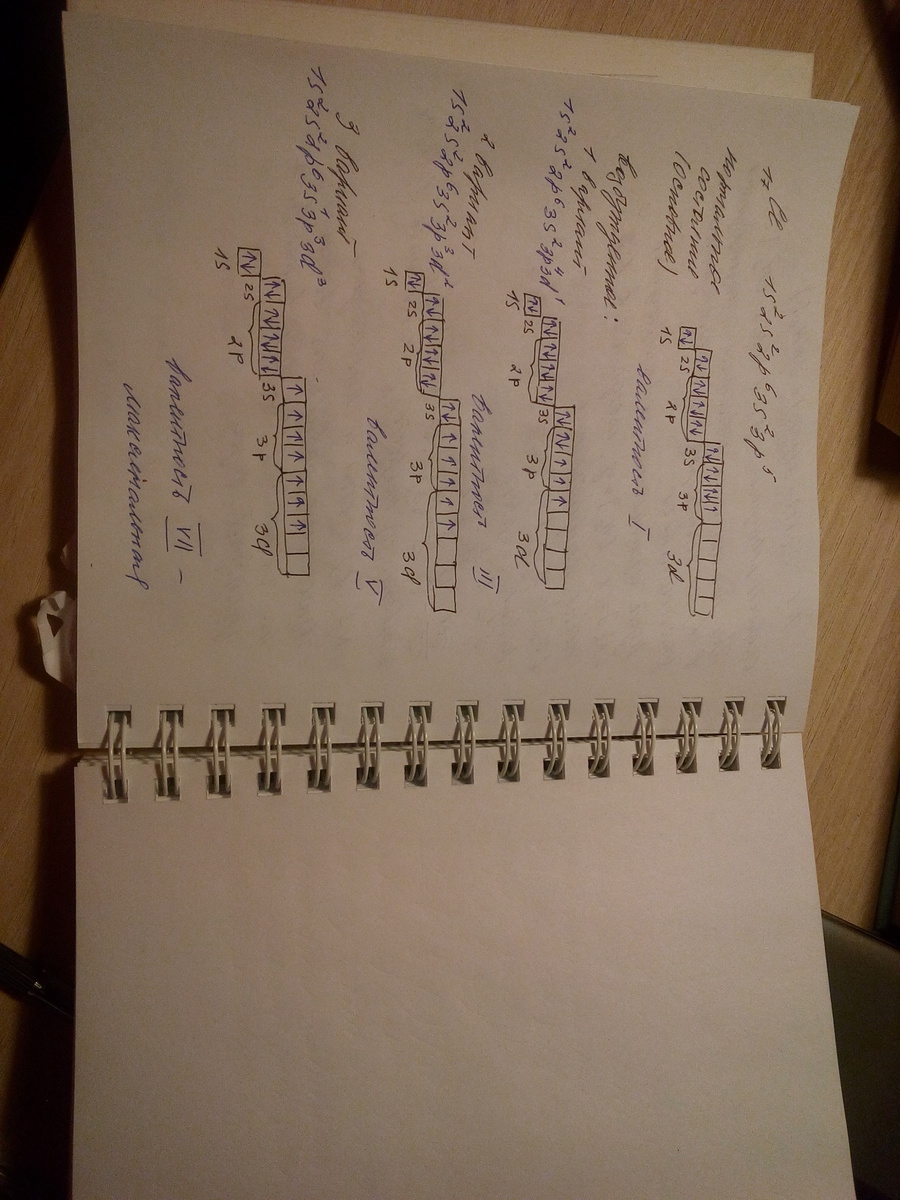 17 Cl 1s²2s²2p⁶3s²3p⁵
нормальное
состояние
(основное)
1s 2s 2p 3s 3p 3d
валентность I
возбужденное:
1 вариант
1s²2s²2p⁶3s²3p⁴3d¹
1s 2s 2p 3s 3p 3d
валентност III
2 вариант
1s²2s²2p⁶3s²3p³3d²
1s 2s 2p 3s 3p 3d
валентность V
3 вариант
1s²2s²2p⁶3s¹3p³3d³
1s 2s 2p 3s 3p 3d
валентность VII –
максимальная